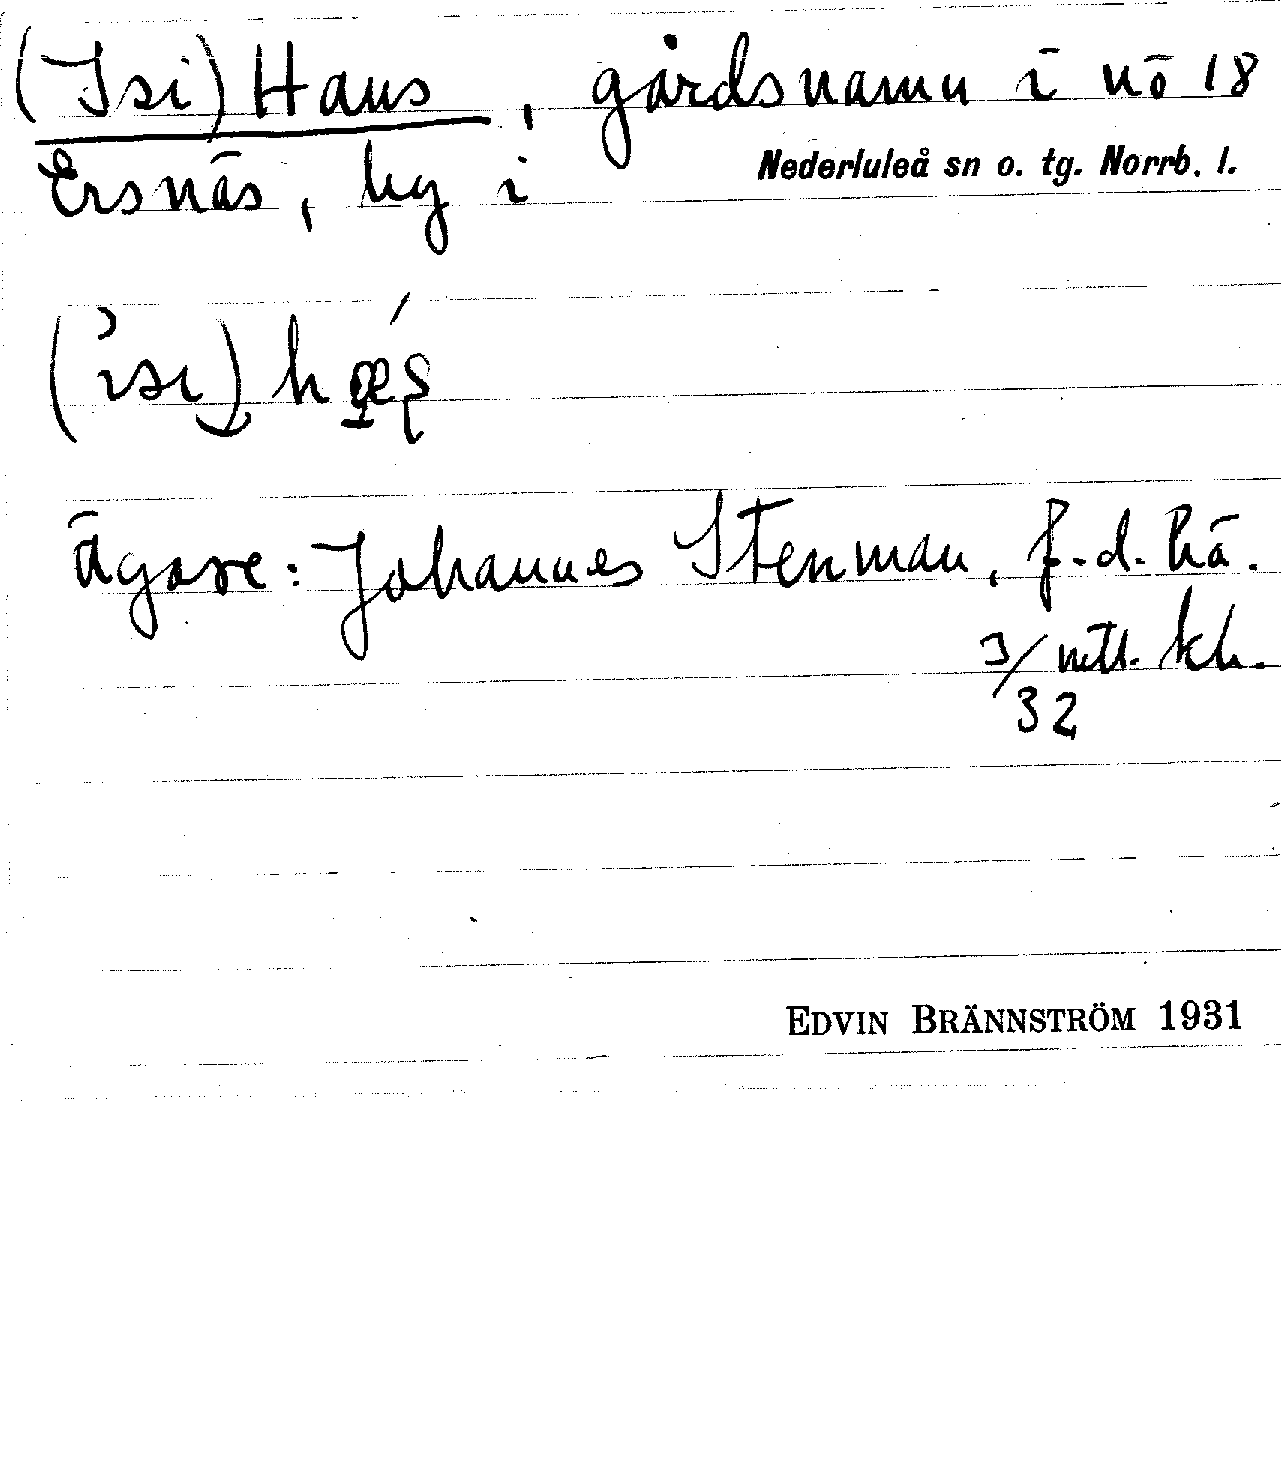 (Isi)Hans, gårdsnamn i nö 18
Ersnäs, by i Nederluleå sn o. tg. Norrb. l.
ägare: Johannes Stenman, f.d. hä.
3/32 mtl. kh.
EDVIN BRÄNNSTRÖM 1931